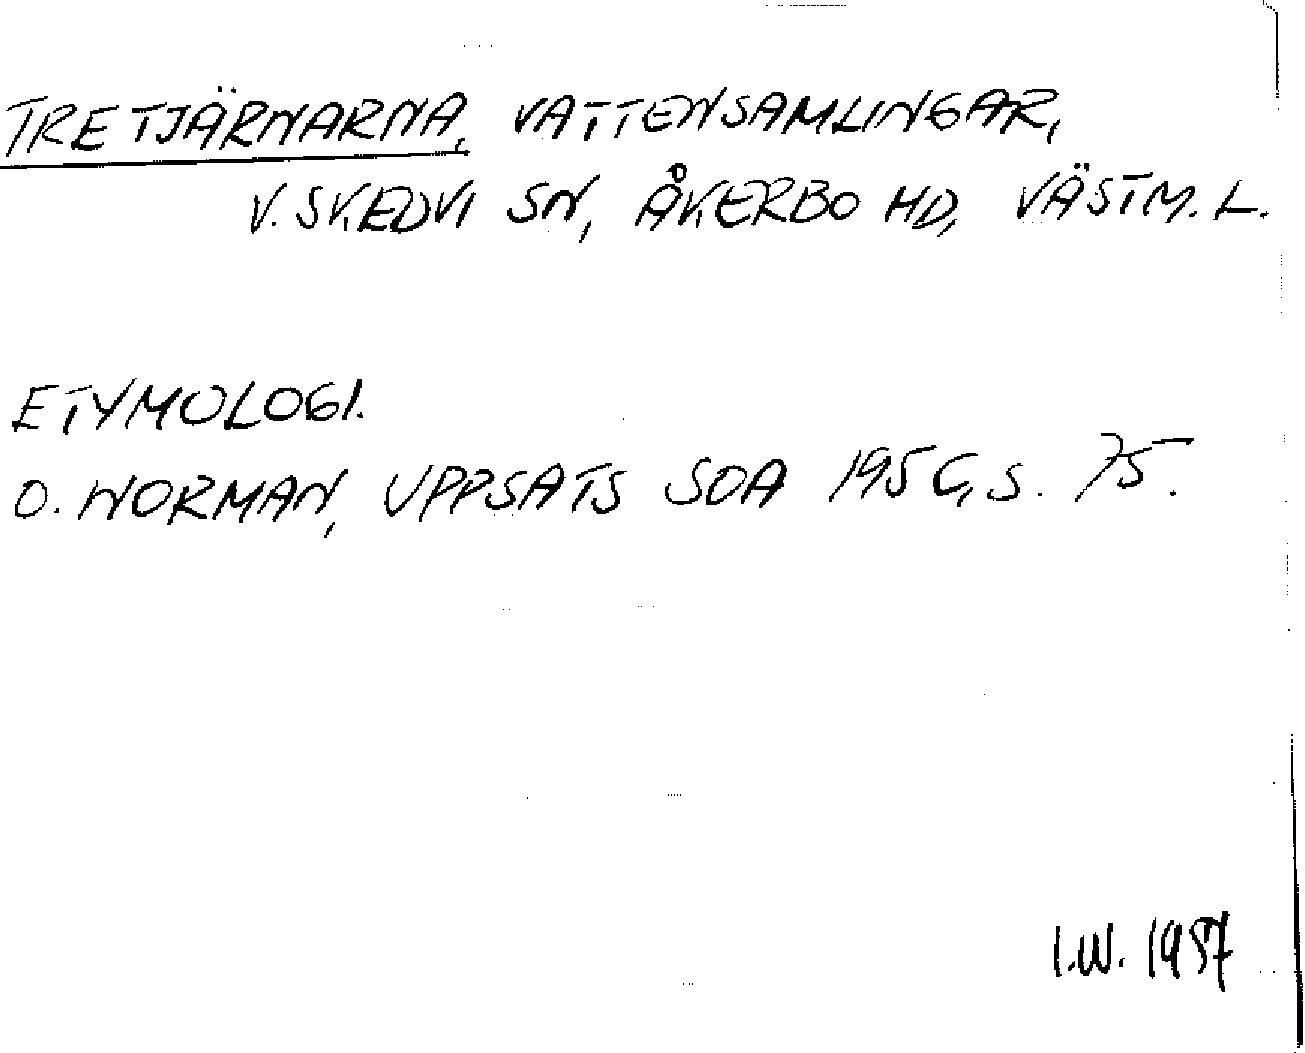 TRE TJÄRNARNA, VATTENSAMLINGAR,
V. SKEDVI SN, ÅKERBO HD, VÄSTM. L.
ETYMOLOGI.
O. NORMAN, UPPSATS SOA 1956, S. 75.
I.W. 1957